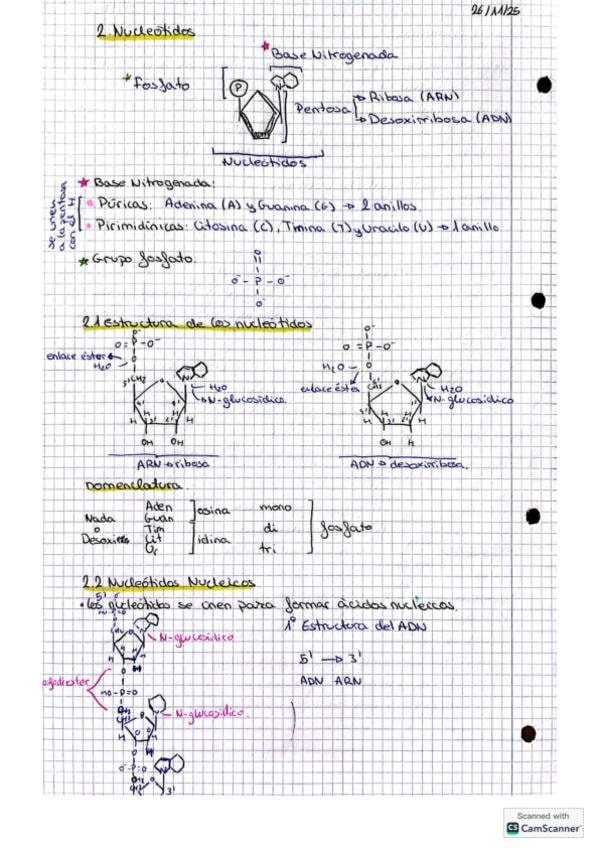 26/11/25
2. Nucleótidos
* Base Nitrogenada
* Fosfato
P
N
Pentosa
→ Ribosa (ARN)
→ Desoxirribosa (ADN)
Nucleótidos
★ Base Nitrogenada:
se unen a la pentosa con el H
• Púricas: Adenina (A) y Guanina (G) → 2 anillos.
• Pirimidínicas: Citosina (C), Timina (T) y Uracilo (U) → 1 anillo
★ Grupo fosfato.
O
O⁻ - P - O⁻
O⁻
2.1 Estructura de los nucleótidos
O⁻
O=P-O⁻
O
enlace éster
H₂O
5'CH₂
O
N
H₂O
N-glucosídico.
H H H H
OH OH
ARN → ribosa
O⁻
O=P-O⁻
H₂O
O
enlace éster
O
N
H₂O
N-glucosídico
H H H H
OH H
ADN → desoxirribosa.
nomenclatura.
Nada
o
Aden
Guan
osina
Tim
Cit
Ur
idina
mono
di
tri
fosfato
2.2 Nucleótidos Nucleicos
• Los nucleótidos se unen para formar ácidos nucleicos.
5'
N-glucosídico
1º Estructura del ADN
5' → 3'
ADN ARN
HO-P=O
N-glucosídico.
O⁻-P=O
3'
Scanned with
CS CamScanner